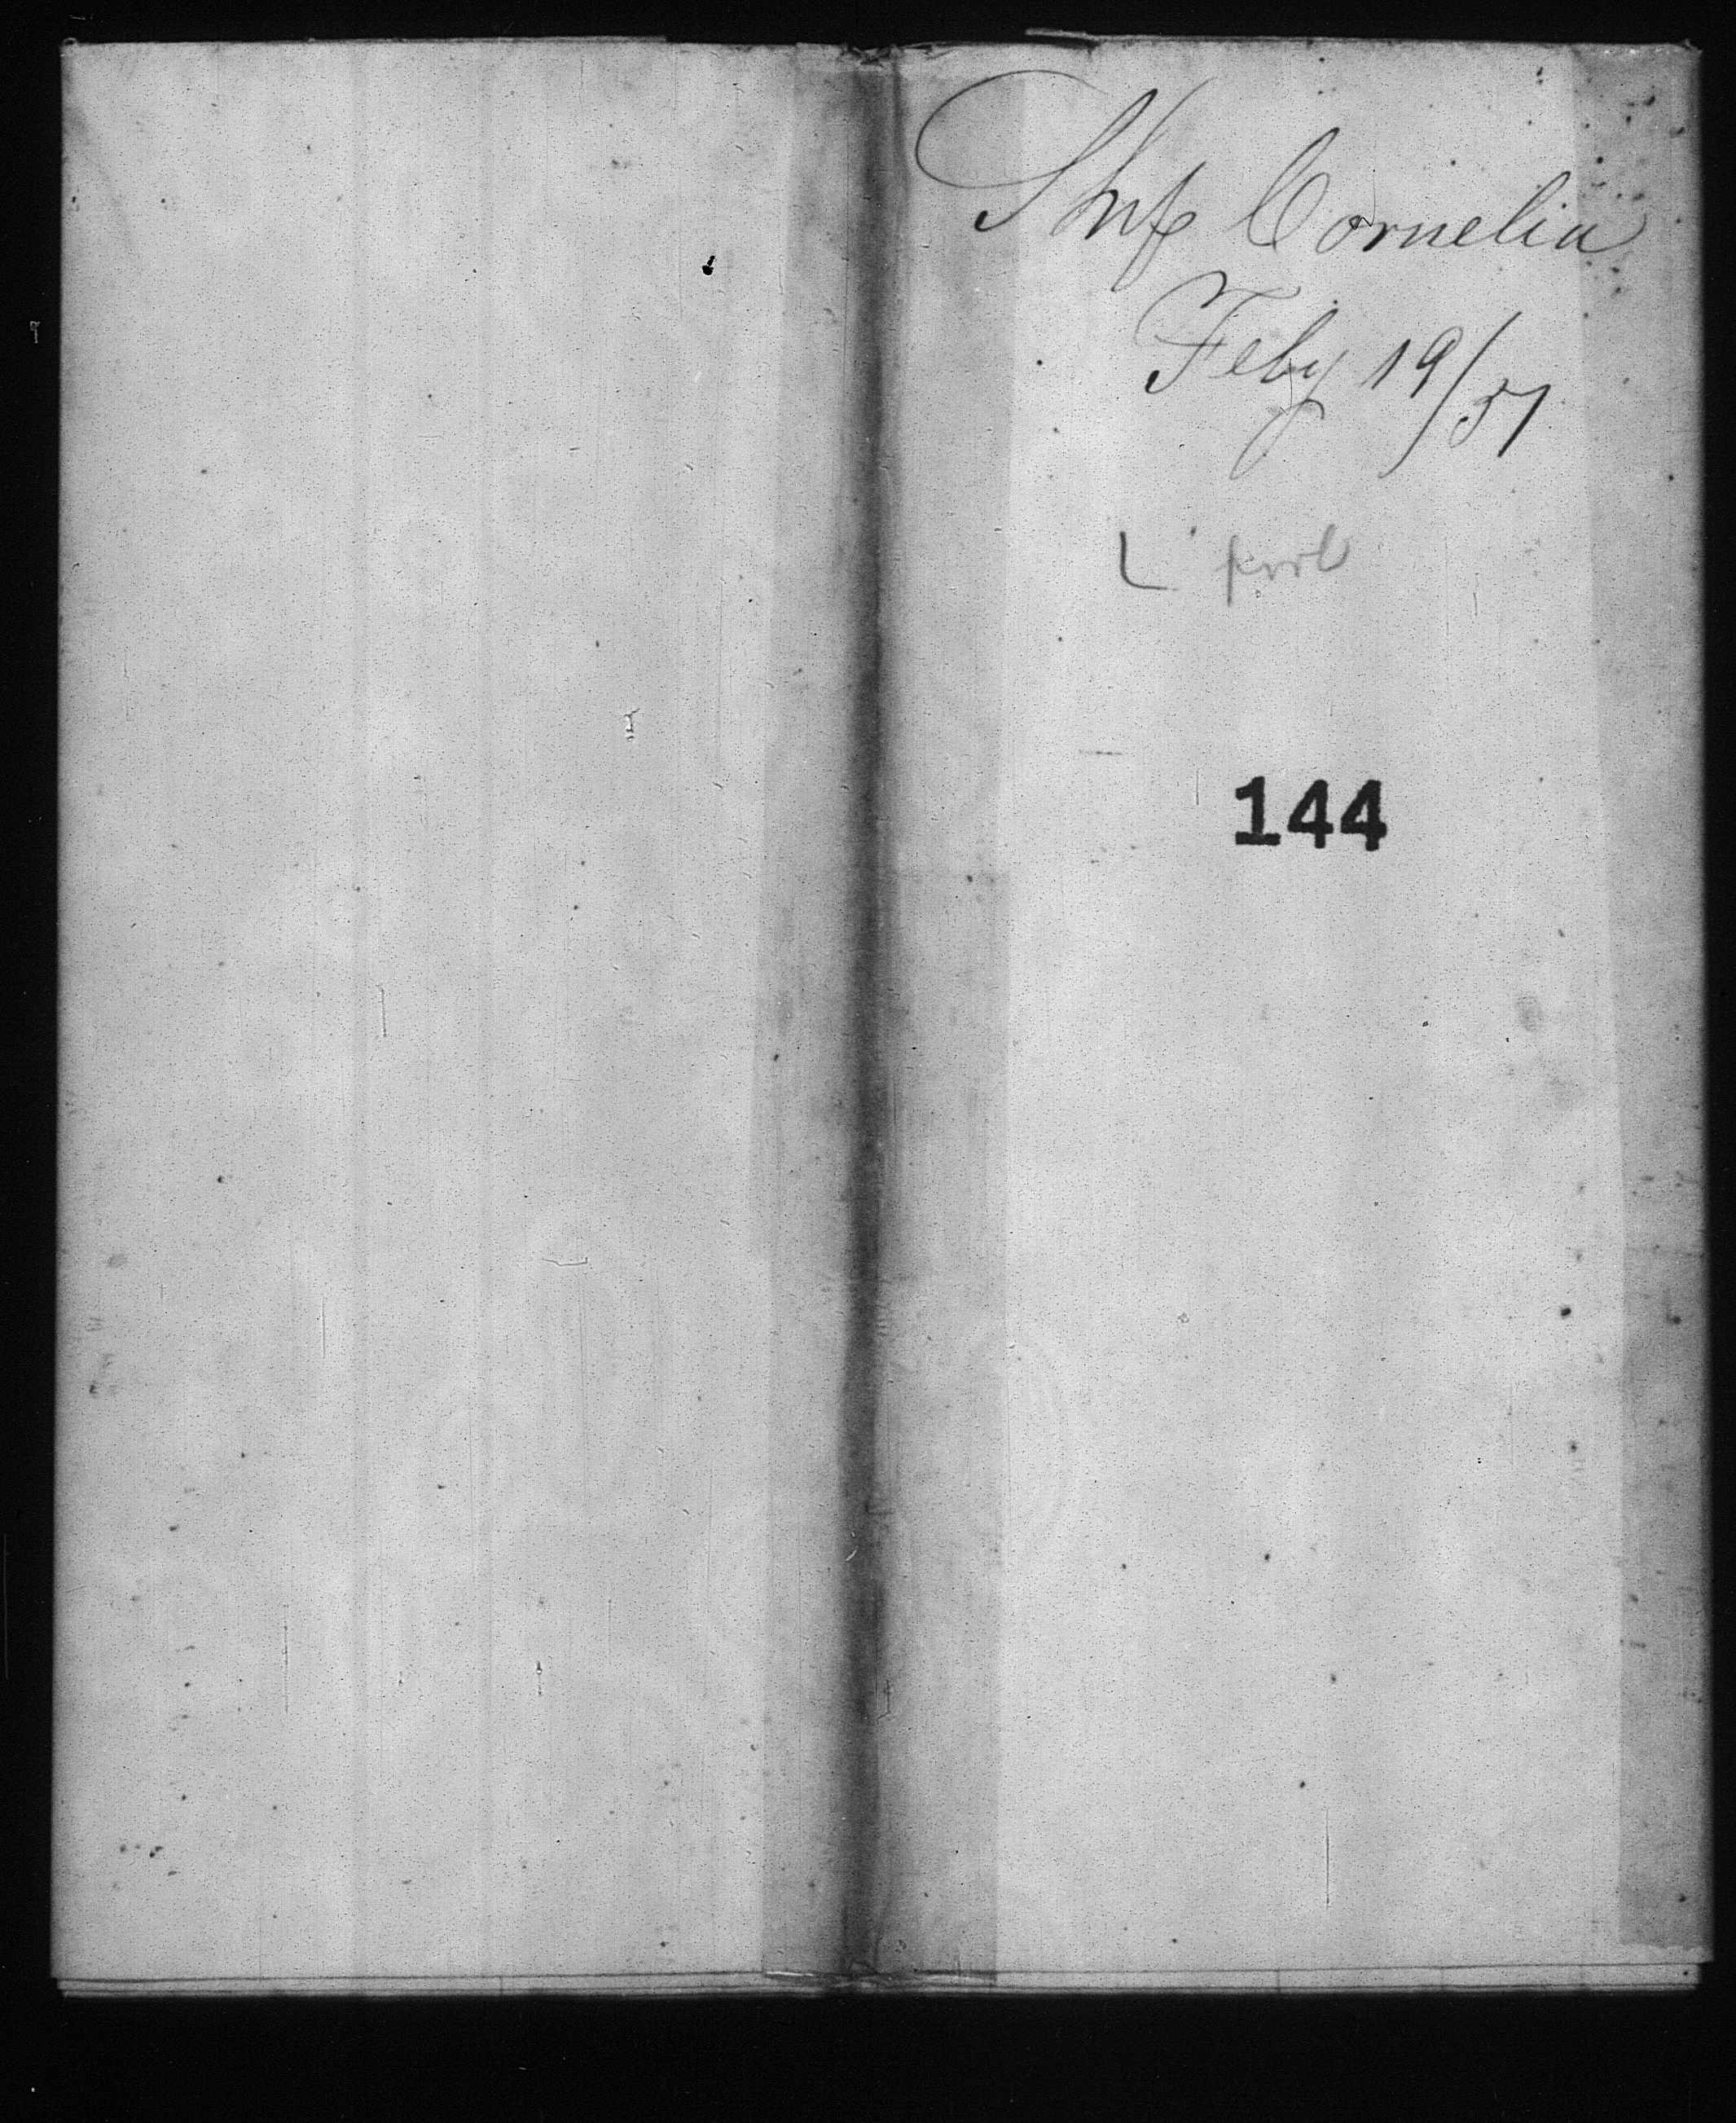 Ship Cornelia
Feby 19/51
L
144